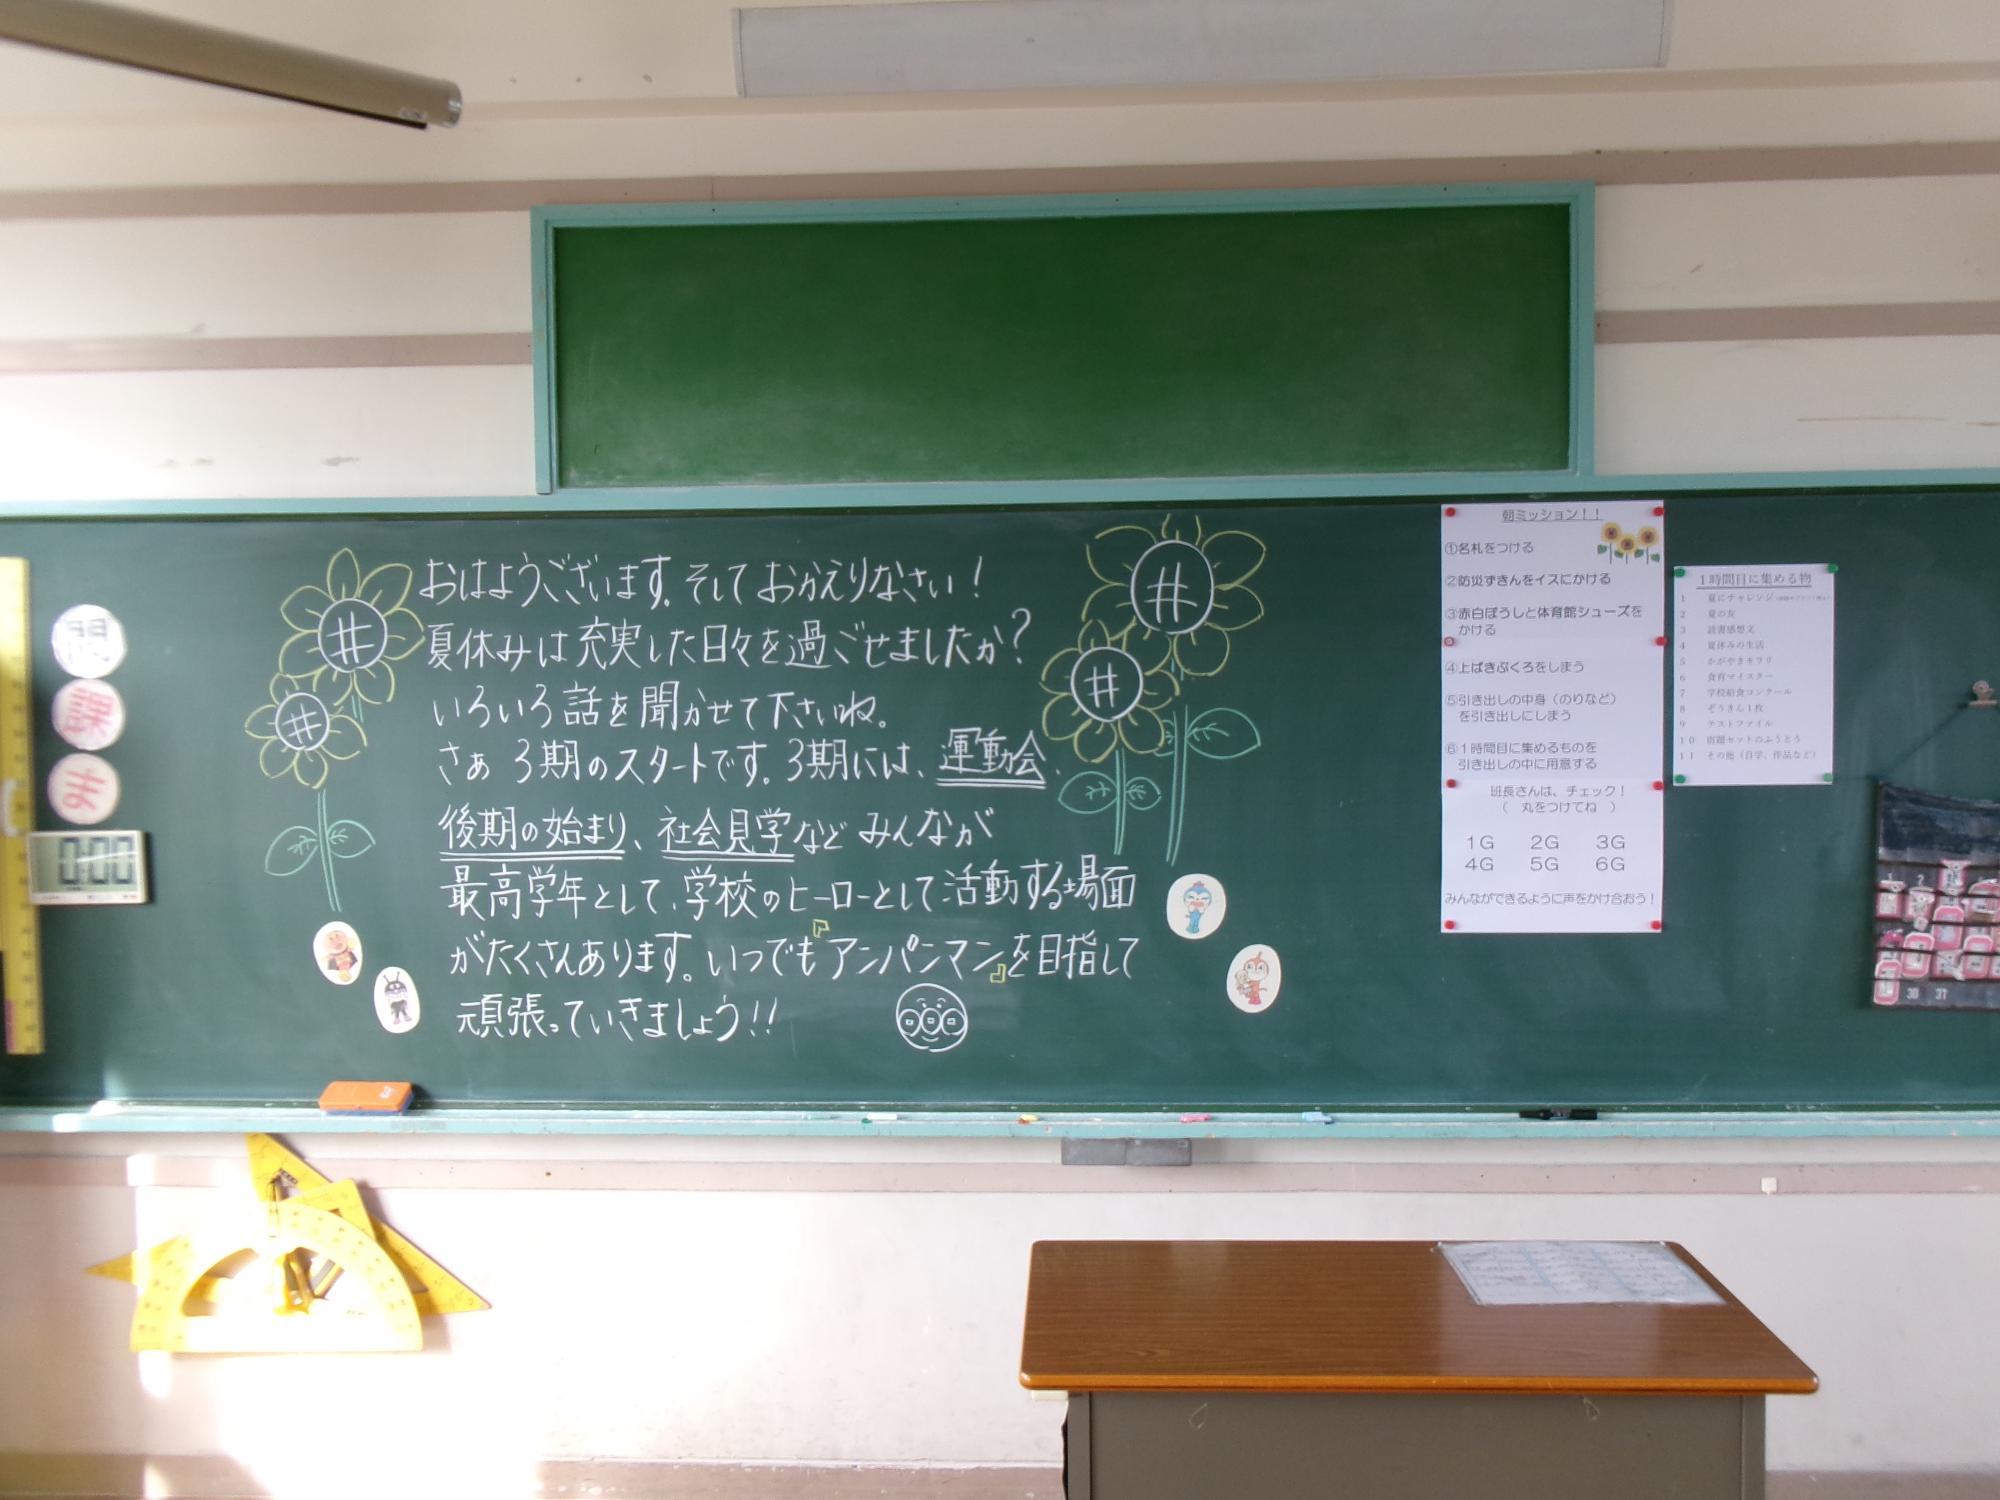 おはようございます。そしておかえりなさい!
夏休みは充実した日々を過ごせましたか?
いろいろ話を聞かせて下さいね。
さぁ 3期のスタートです。3期には、運動会、
後期の始まり、社会見学など みんなが
最高学年として、学校のヒーローとして活動する場面
がたくさんあります。いつでも『アンパンマン』を目指して
頑張っていきましょう!!
問
課
ま
0:00
朝ミッション!!
①名札をつける
②防災ずきんをイスにかける
③赤白ぼうしと体育館シューズを
かける
④上ばきぶくろをしまう
⑤引き出しの中身(のりなど)
を引き出しにしまう
⑥1時間目に集めるものを
引き出しの中に用意する
班長さんは、チェック!
( 丸をつけてね )
1G 2G 3G
4G 5G 6G
みんなができるように声をかけ合おう!
1時間目に集める物
1 夏にチャレンジ
2 夏の友
3 読書感想文
4 夏休みの生活
5 かがやきキラリ
6 食育マイスター
7 学校給食コンクール
8 ぞうきん1枚
9 テストファイル
10 宿題セットのふうとう
11 その他(自学、作品など)
1 2 3
30 31